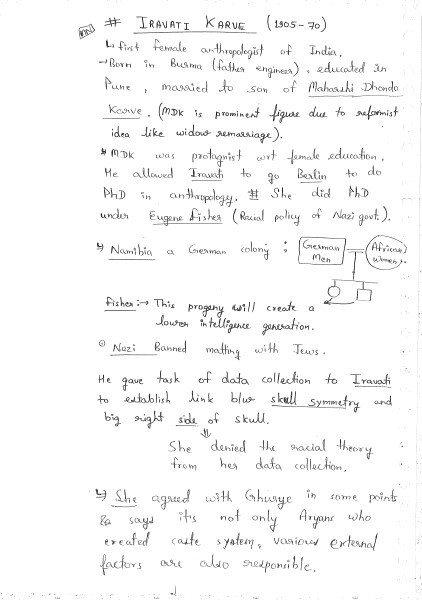 # IRAVATI KARVE (1905-70)
↳ first female anthropologist of India.
→ Born in Burma (father engineer), educated in
Pune, married to son of Maharshi Dhondo
Karve. (MDK is prominent figure due to reformist
idea like widow remarriage).
* MDK was protagnist wrt female education,
He allowed Iravati to go Berlin to do
PhD in anthropology. # She did PhD
under Eugene Fisher (Racial policy of Nazi govt.).
↳ Namibia a German colony : German Men African women.
Fisher :→ This progeny will create a
lower intelligence generation.
⊙ Nazi Banned matting with Jews.
He gave task of data collection to Iravati
to establish link b/w skull symmetry and
big right side of skull.
⇓
She denied the racial theory
from her data collection.
↳ She agreed with Ghurye in some points
& says it's not only Aryans who
created caste system, various external
factors are also responsible.